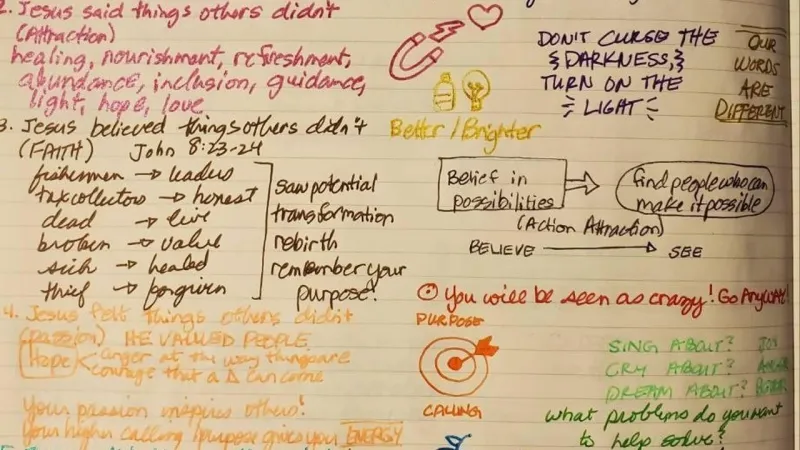 2. Jesus said things others didn't
(Attraction)
healing, nourishment, refreshment,
abundance, inclusion, guidance,
light, hope, love
DON'T CURSE THE
DARKNESS,
TURN ON THE
LIGHT
OUR
WORDS
ARE
DIFFERENT
Better/Brighter
3. Jesus believed things others didn't
(FAITH) John 8:23-24
fishermen → leaders
tax collectors → honest
dead → live
broken → value
sick → healed
thief → forgiven
saw potential
transformation
rebirth
remember your
purpose!
Belief in
possibilities
find people who can
make it possible
(Action Attraction)
BELIEVE → SEE
You will be seen as crazy! Go Anyway!
4. Jesus felt things others didn't
(passion) HE VALUED PEOPLE
Hope < anger at the way things are
courage that a Δ can come
Your passion inspires others!
Your higher calling/purpose gives you ENERGY
PURPOSE
CALLING
SING ABOUT? JOY
CRY ABOUT?
DREAM ABOUT?
What problems do you want
to help solve?